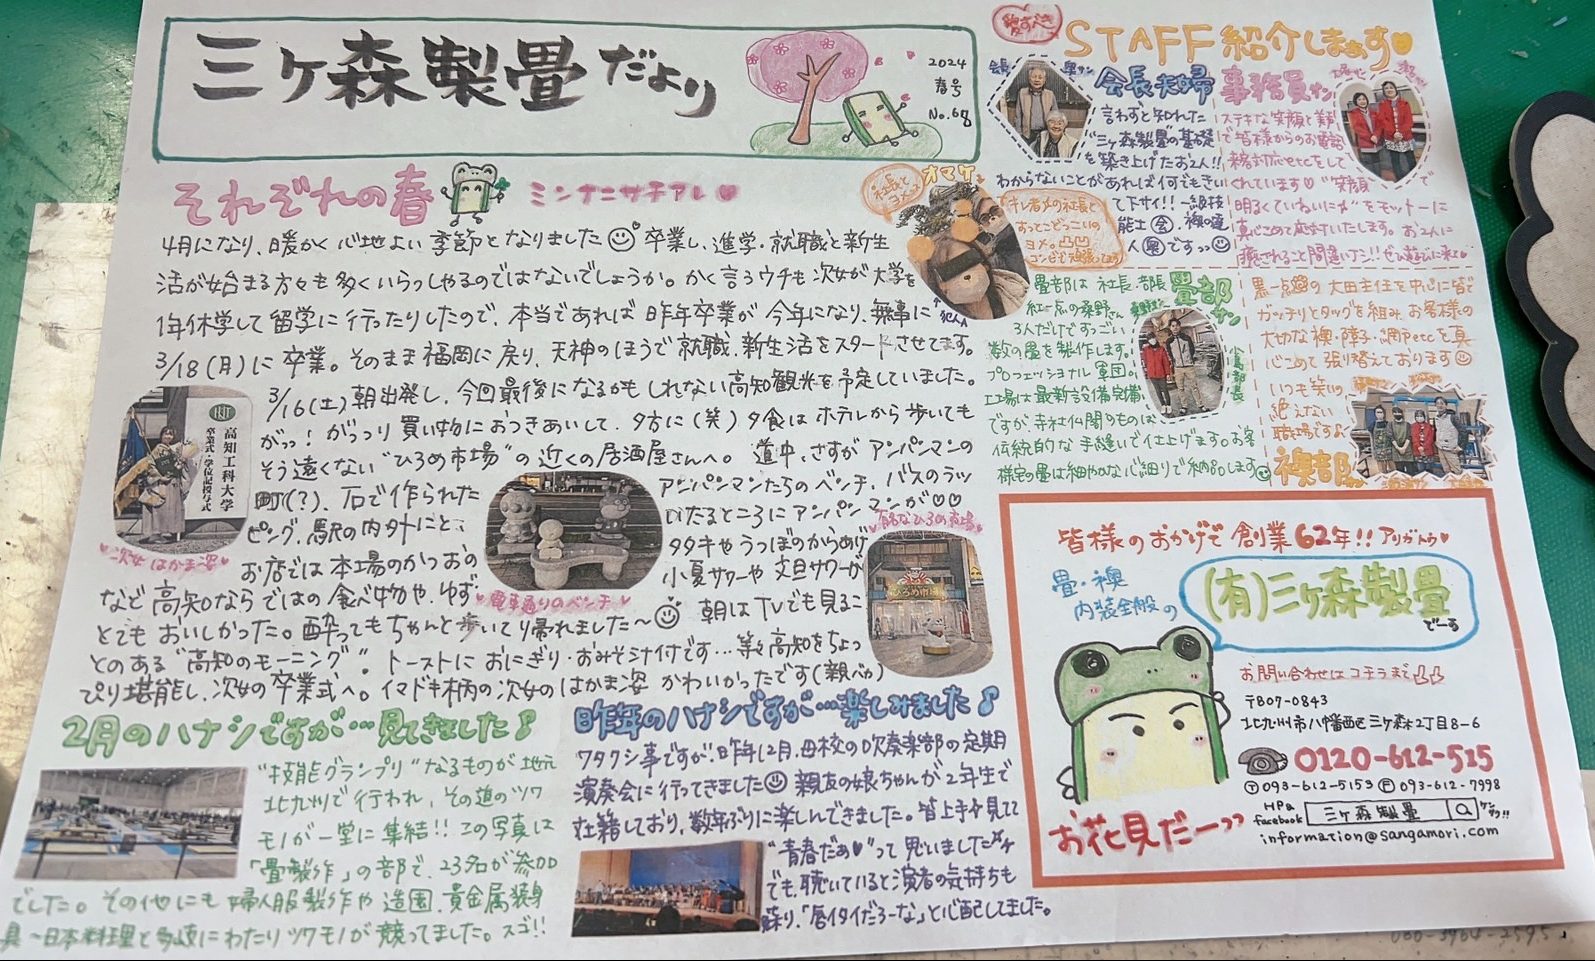 三ヶ森製畳だより
2024
春号
No.68
それぞれの春
ミンナニサチアレ♥
4月になり、暖かく心地よい季節となりました 卒業し、進学・就職と新生
活が始まる方々も多くいらっしゃるのではないでしょうか。かく言うウチも次女が大学を
1年休学して留学に行ったりしたので、本当であれば昨年卒業が今年になり、無事に
3/18(月)に卒業。そのまま福岡に戻り、天神のほうで就職、新生活をスタートさせてます。
3/16(土)朝出発し、今回最後になるかもしれない高知観光を予定していました。
がっ!がっつり買い物におつきあいして、夕方に(笑)夕食はホテルから歩いても
そう遠くない"ひろめ市場"の近くの居酒屋さんへ。道中、さすがアンパンマンの
町(?)、石で作られたアンパンマンたちのベンチ、バスのラッ
ピング、駅の内外にと、いたるところにアンパンマンが♡♡
お店では本場のかつおのタタキやうつぼのからあげ
など高知ならではの食べ物や、ゆず小夏サワーや文旦サワーが
とてもおいしかった。酔ってもちゃんと歩いて帰れました〜 朝はTVでも見るこ
とのある"高知のモーニング"。トーストにおにぎり・おみそ汁付です…等々高知をちょっ
ぴり堪能し、次女の卒業式へ。イマドキ柄の次女のはかま姿 かわいかったです(親バカ)
高知工科大学
卒業式・学位記授与式
♥次女 はかま姿♥
♥電車通りのベンチ♥
♥有名なひろめ市場♥
ひろめ市場
2月のハナシですが…見てきました♪
"技能グランプリ"なるものが地元
北九州で行われ、その道のツワ
モノが一堂に集結!!この写真は
「畳製作」の部で、23名が参加
でした。その他にも婦人服製作や造園、貴金属装身
具〜日本料理と多岐にわたりツワモノが競ってました。スゴ!!
昨年のハナシですが…楽しみました♪
ワタクシ事ですが、昨年12月、母校の吹奏楽部の定期
演奏会に行ってきました 親友の娘ちゃんが2年生で
在籍しており、数年ぶりに楽しんできました。皆上手で見てて
"青春だぁ♥"って思いました
でも、聴いていると演者の気持ちも
蘇り、「唇イタイだろーな」と心配してました。
愛すべき
STAFF紹介しまぁす♥
会長サン
奥サン
会長夫婦
言わずと知れた
"三ヶ森製畳"の基礎
を築き上げたお2人!!
わからないことがあれば何でもきい
て下サイ!!一級技
能士会、襖の達
人奥ですっっ
事務員サン
ステキな笑顔と美声
で皆様からのお電話
来客対応etcをして
くれています♡"笑顔で
明るくていねいにメ"をモットーに
真心こめて応対いたします。お2人に
癒されること間違いナシ!!ぜひ遊びに来て♥
オマケ
社長と
ヨメ
キレ者メの社長と
すっとこどっこいの
ヨメ。
コンビで頑張ってます
↑犯人
畳部サン
畳部は社長、部長
紅一点の桑野さん
3人だけですっごい
数の畳を製作します。
プロフェッショナル軍団。
工場は最新設備完備
ですが、寺社仏閣のものは
伝統的な手縫いで仕上げます。お客
様宅の畳は細かな心細りで納品します
桑野サン
小島部長
黒一点の太田主任を中心に皆で
ガッチリとタッグを組み、お客様の
大切な襖・障子・網戸etcを真
心こめて張り替えております
いつも笑いの
絶えない
職場です♪
襖部
皆様のおかげで創業62年!!アリガトウ♥
畳・襖
内装全般の
(有)三ヶ森製畳
でーす
お問い合わせはコチラまで
〒807-0843
北九州市八幡西区三ヶ森2丁目8-6
0120-612-515
Ⓣ093-612-5153 Ⓕ093-612-7998
HP&
facebook
三ヶ森製畳
ケンサク!!
information@sangamori.com
お花見だーっっ